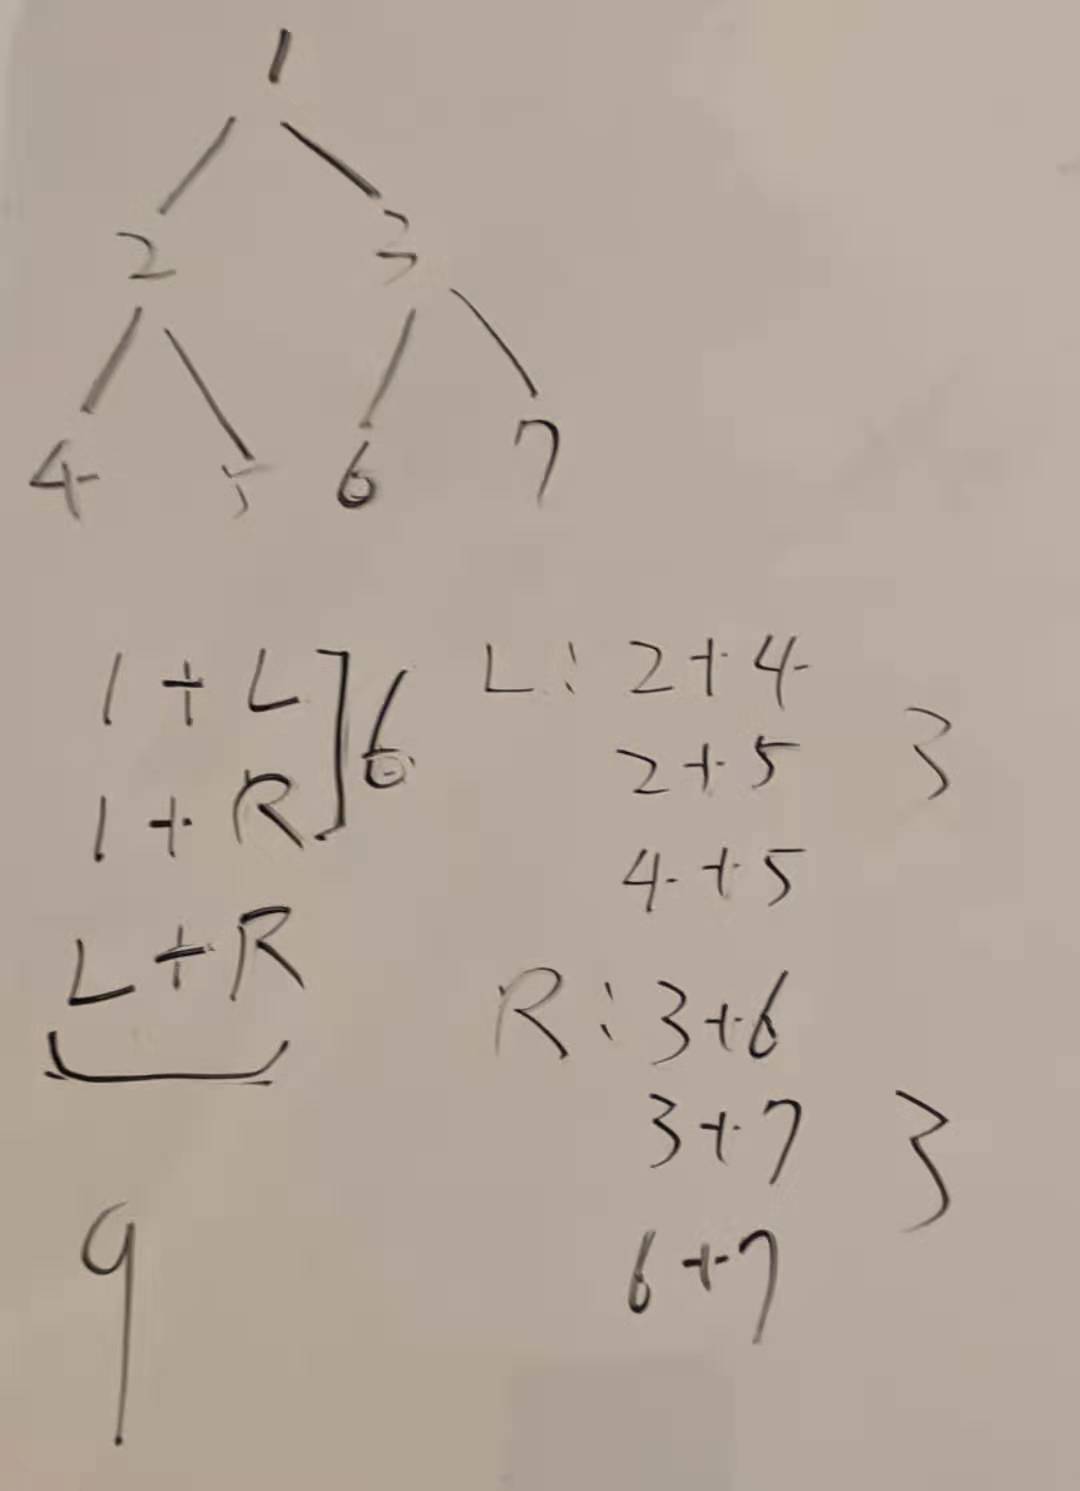 1
2 3
4 5 6 7
1 + L ] 6
1 + R
L + R
9
L : 2 + 4
2 + 5
4 + 5
3
R : 3 + 6
3 + 7
6 + 7
3